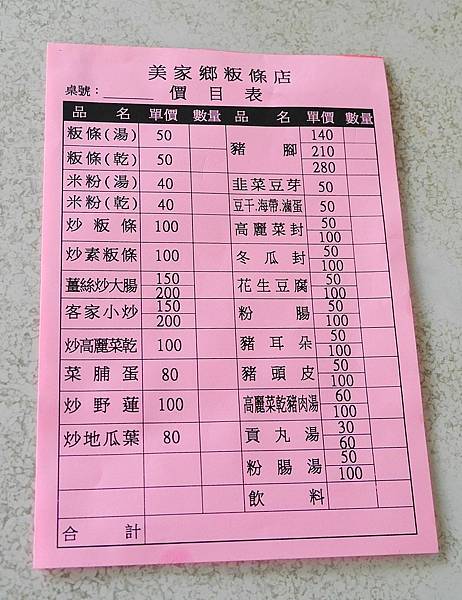 美家鄉粄條店
桌號：
價目表
品名 單價 數量 品名 單價 數量
粄條(湯) 50
粄條(乾) 50
米粉(湯) 40
米粉(乾) 40
炒粄條 100
炒素粄條 100
薑絲炒大腸 150 200
客家小炒 150 200
炒高麗菜乾 100
菜脯蛋 80
炒野蓮 100
炒地瓜葉 80
合計
豬腳 140 210 280
韭菜豆芽 50
豆干.海帶.滷蛋 50
高麗菜封 50 100
冬瓜封 50 100
花生豆腐 50 100
粉腸 50 100
豬耳朵 50 100
豬頭皮 50 100
高麗菜乾豬肉湯 60 100
貢丸湯 30 60
粉腸湯 50 100
飲料